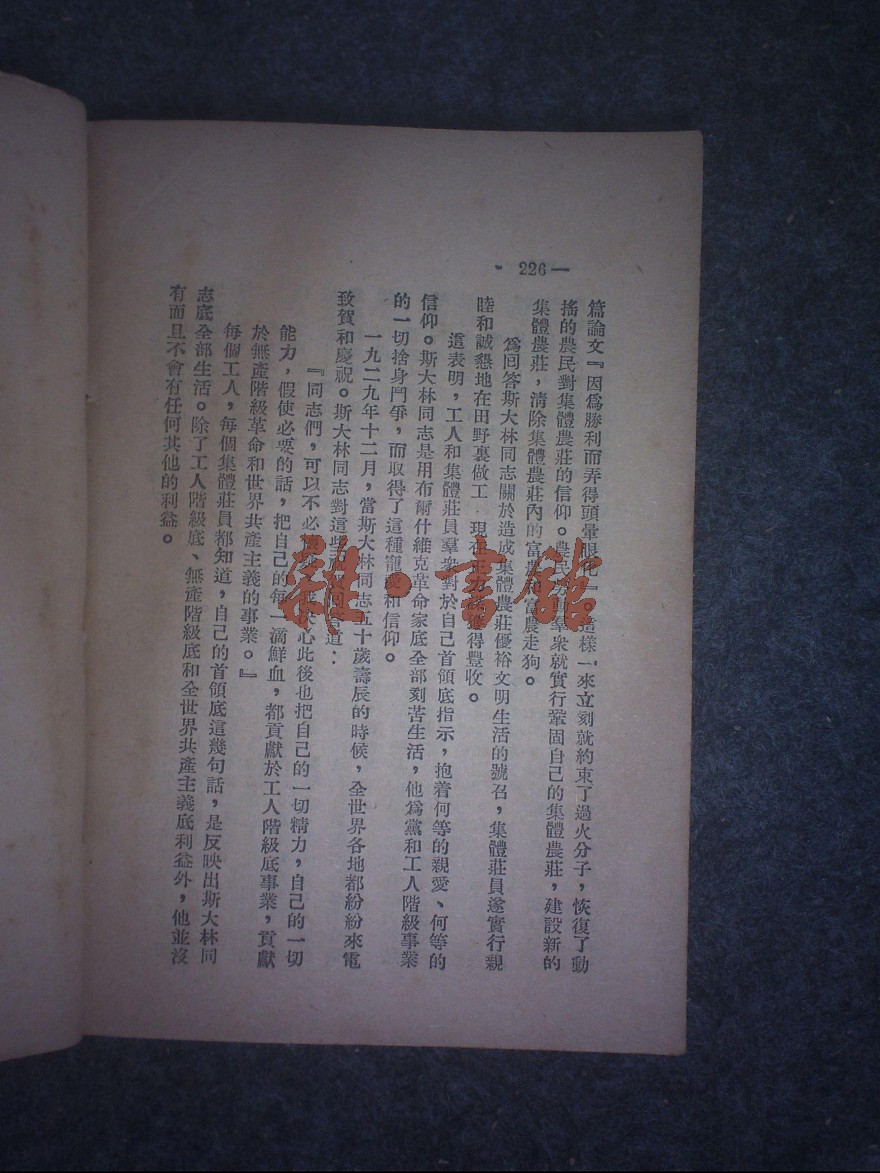 - 226 —
篇論文『因爲勝利而弄得頭暈眼花』 這樣一來立刻就約束了過火分子，恢復了動
搖的農民對集體農莊的信仰。農民 羣衆就實行鞏固自己的集體農莊，建設新的
集體農莊，清除集體農莊內的富農 富農走狗。
爲回答斯大林同志關於造成集體農莊優裕文明生活的號召，集體莊員遂實行親
睦和誠懇地在田野裏做工 現在 得豐收。
這表明，工人和集體莊員羣衆對於自己首領底指示，抱着何等的親愛、何等的
信仰。斯大林同志是用布爾什維克革命家底全部刻苦生活，他爲黨和工人階級事業
的一切捨身鬥爭，而取得了這種寵愛和信仰。
一九二九年十二月，當斯大林同志五十歲壽辰的時候，全世界各地都紛紛來電
致賀和慶祝。斯大林同志對這些 回答道：
『同志們，可以不必 決心此後也把自己的一切精力，自己的一切
能力，假使必要的話，把自己的每一滴鮮血，都貢獻於工人階級底事業，貢獻
於無產階級革命和世界共產主義的事業。』
每個工人，每個集體莊員都知道，自己的首領底這幾句話，是反映出斯大林同
志底全部生活。除了工人階級底、無產階級底和全世界共產主義底利益外，他並沒
有而且不會有任何其他的利益。
雜·書館